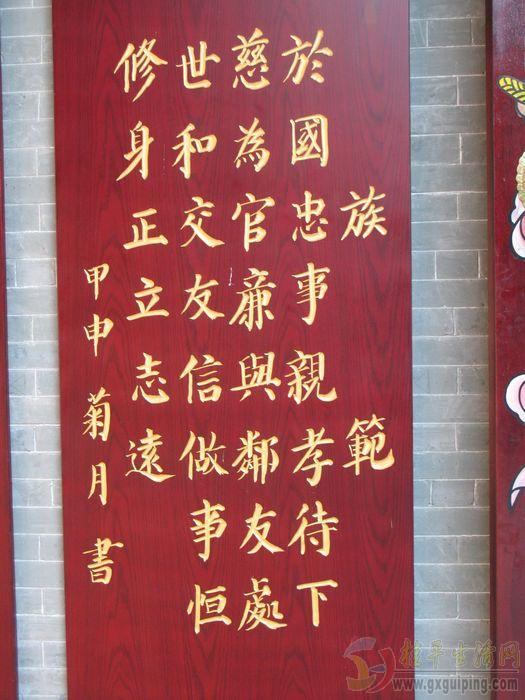 族範
於國忠事親孝待下
慈為官廉與鄰友處
世和交友信做事恒
修身正立志遠
甲申菊月書
桂平生活网
www.gxguiping.com